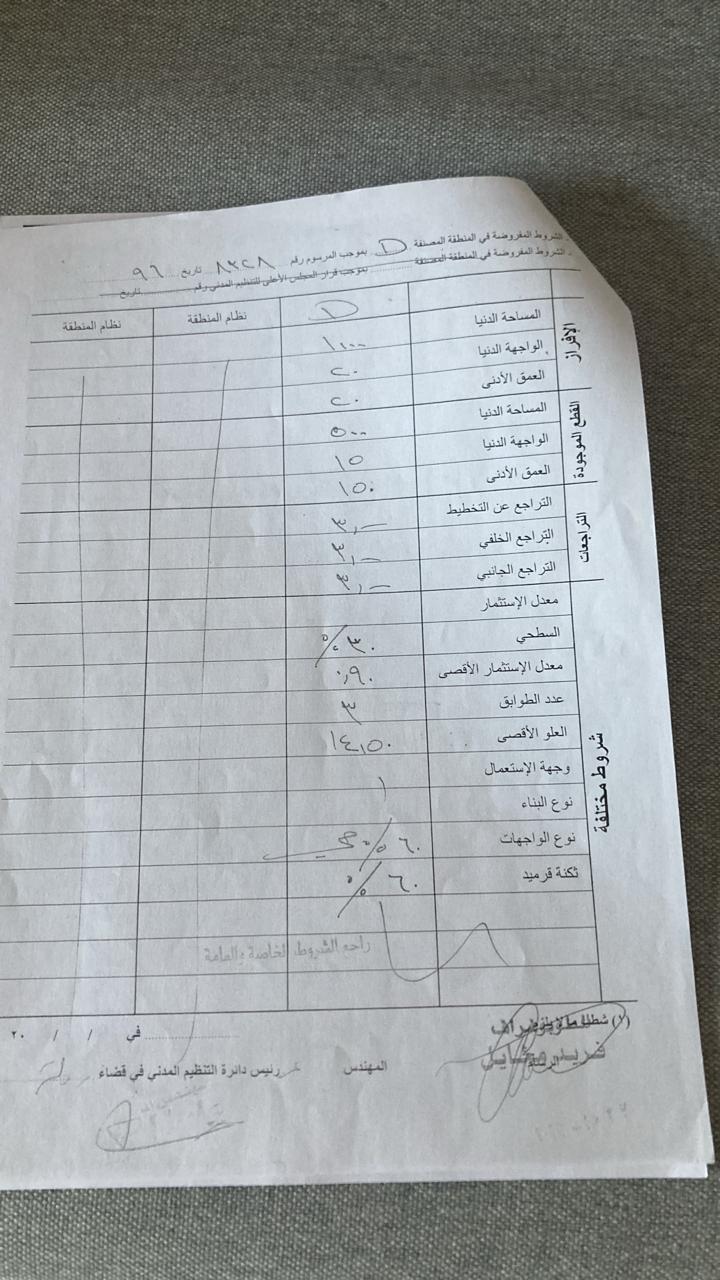 الشروط المفروضة في المنطقة المصنفة D بموجب المرسوم رقم ٨٣٢٨ تاريخ ٩٦
الشروط المفروضة في المنطقة المصنفة بموجب قرار المجلس الأعلى للتنظيم المدني رقم تاريخ
D نظام المنطقة نظام المنطقة
الإفراز
المساحة الدنيا ١٠٠٠
الواجهة الدنيا ٢٠
العمق الأدنى ٢٠
القطع الموجودة
المساحة الدنيا ٥٠٠
الواجهة الدنيا ١٥
العمق الأدنى ١٥
التراجعات
التراجع عن التخطيط ٣,ــ
التراجع الخلفي ٣,ــ
التراجع الجانبي ٣,ــ
شروط مختلفة
معدل الإستثمار
السطحي ٣٠٪
معدل الإستثمار الأقصى ٠,٩٠
عدد الطوابق ٣
العلو الأقصى ١٤,٥٠
وجهة الإستعمال
نوع البناء ١
نوع الواجهات ٦٠٪
ثكنة قرميد ٦٠٪
راجع الشروط الخاصة والعامة
(١) شطب ما لا يلزم
فريد مخايل
في / / ٢٠
المهندس رئيس دائرة التنظيم المدني في قضاء